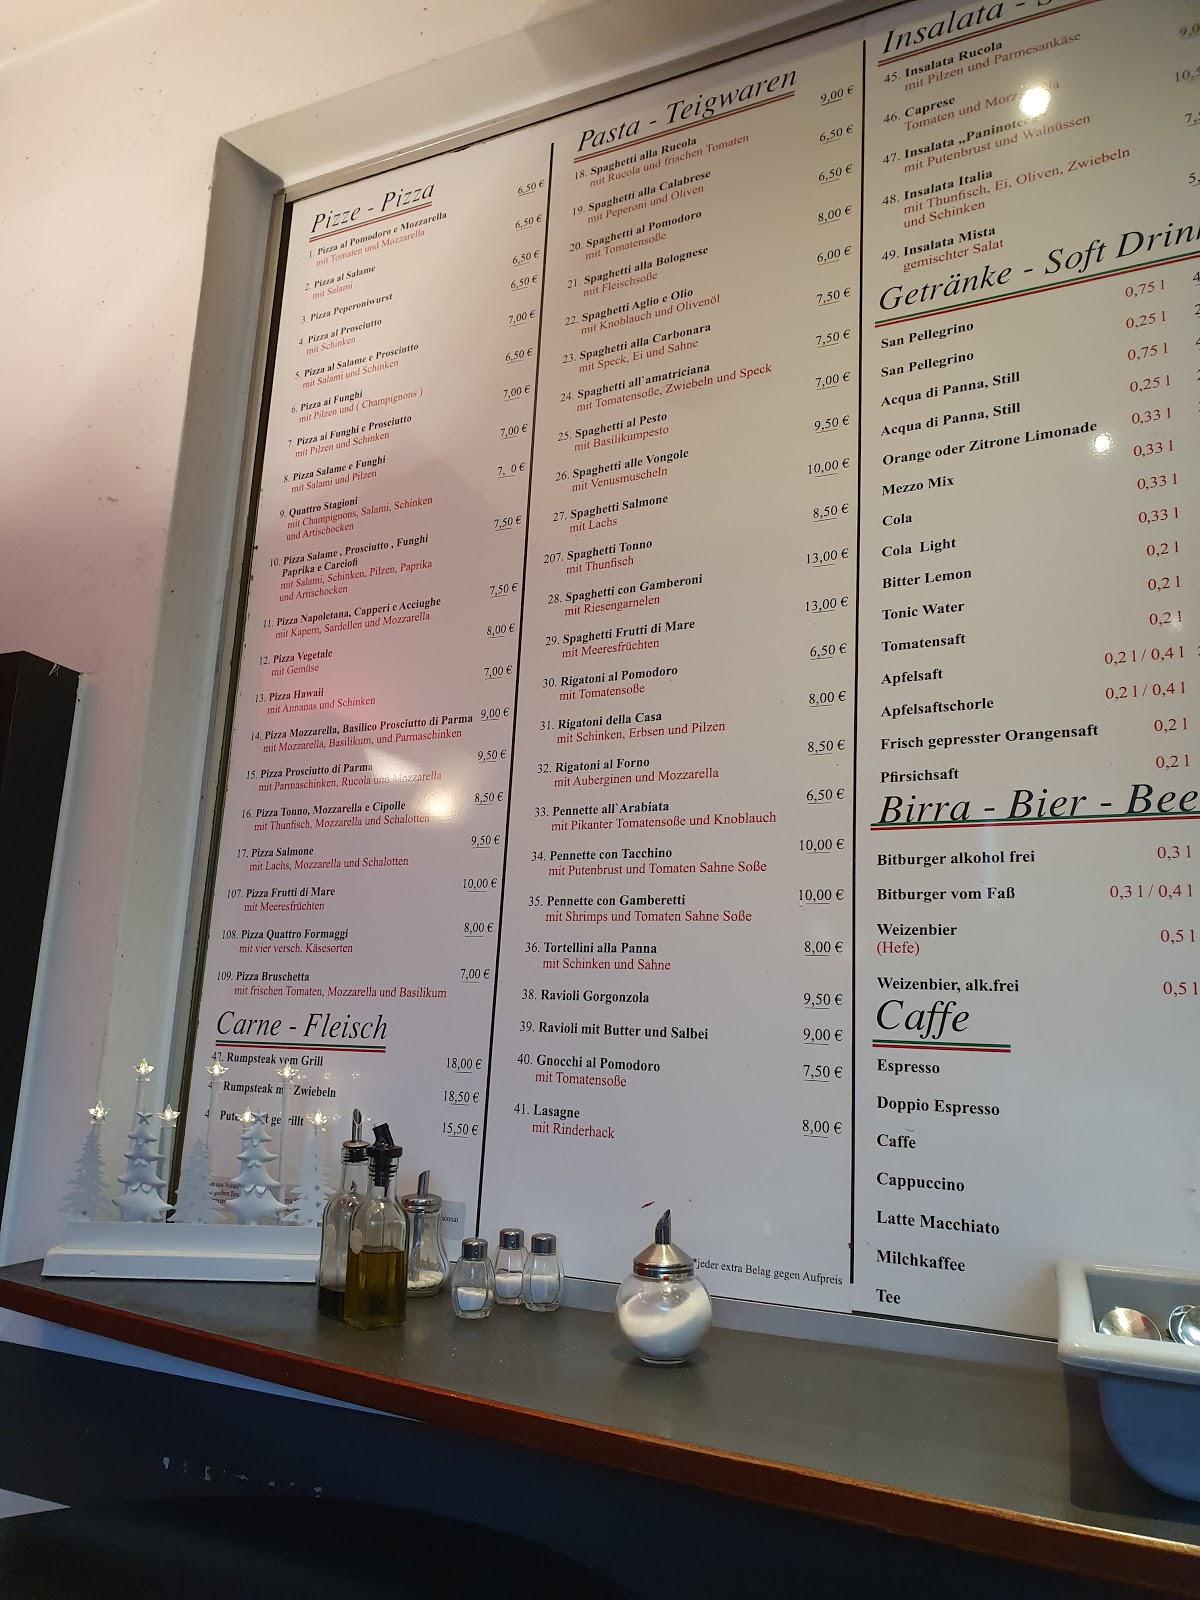 Pizze - Pizza
1. Pizza al Pomodoro e Mozzarella 6,50 €
mit Tomaten und Mozzarella
2. Pizza al Salame 6,50 €
mit Salami
3. Pizza Peperoniwurst 6,50 €
4. Pizza al Prosciutto 6,50 €
mit Schinken
5. Pizza al Salame e Prosciutto 7,00 €
mit Salami und Schinken
6. Pizza ai Funghi 6,50 €
mit Pilzen und ( Champignons )
7. Pizza ai Funghi e Prosciutto 7,00 €
mit Pilzen und Schinken
8. Pizza Salame e Funghi 7,00 €
mit Salami und Pilzen
9. Quattro Stagioni 7, 0 €
mit Champignons, Salami, Schinken
und Artischocken
10. Pizza Salame , Prosciutto , Funghi 7,50 €
Paprika e Carciofi
mit Salami, Schinken, Pilzen, Paprika
und Artischocken
11. Pizza Napoletana, Capperi e Acciughe 7,50 €
mit Kapern, Sardellen und Mozzarella
12. Pizza Vegetale 8,00 €
mit Gemüse
13. Pizza Hawaii 7,00 €
mit Annanas und Schinken
14. Pizza Mozzarella, Basilico Prosciutto di Parma 9,00 €
mit Mozzarella, Basilikum, und Parmaschinken
15. Pizza Prosciutto di Parma 9,50 €
mit Parmaschinken, Rucola und Mozzarella
16. Pizza Tonno, Mozzarella e Cipolle 8,50 €
mit Thunfisch, Mozzarella und Schalotten
17. Pizza Salmone 9,50 €
mit Lachs, Mozzarella und Schalotten
107. Pizza Frutti di Mare 10,00 €
mit Meeresfrüchten
108. Pizza Quattro Formaggi 8,00 €
mit vier versch. Käsesorten
109. Pizza Bruschetta 7,00 €
mit frischen Tomaten, Mozzarella und Basilikum
Carne - Fleisch
42. Rumpsteak vom Grill 18,00 €
Rumpsteak mit Zwiebeln 18,50 €
15,50 €
Pasta - Teigwaren
18. Spaghetti alla Rucola 9,00 €
mit Rucola und frischen Tomaten
19. Spaghetti alla Calabrese 6,50 €
mit Peperoni und Oliven
20. Spaghetti al Pomodoro 6,50 €
mit Tomatensoße
21. Spaghetti alla Bolognese 8,00 €
mit Fleischsoße
22. Spaghetti Aglio e Olio 6,00 €
mit Knoblauch und Olivenöl
23. Spaghetti alla Carbonara 7,50 €
mit Speck, Ei und Sahne
24. Spaghetti all`amatriciana 7,50 €
mit Tomatensoße, Zwiebeln und Speck
25. Spaghetti al Pesto 7,00 €
mit Basilikumpesto
26. Spaghetti alle Vongole 9,50 €
mit Venusmuscheln
27. Spaghetti Salmone 10,00 €
mit Lachs
207. Spaghetti Tonno 8,50 €
mit Thunfisch
28. Spaghetti con Gamberoni 13,00 €
mit Riesengarnelen
29. Spaghetti Frutti di Mare 13,00 €
mit Meeresfrüchten
30. Rigatoni al Pomodoro 6,50 €
mit Tomatensoße
31. Rigatoni della Casa 8,00 €
mit Schinken, Erbsen und Pilzen
32. Rigatoni al Forno 8,50 €
mit Auberginen und Mozzarella
33. Pennette all`Arabiata 6,50 €
mit Pikanter Tomatensoße und Knoblauch
34. Pennette con Tacchino 10,00 €
mit Putenbrust und Tomaten Sahne Soße
35. Pennette con Gamberetti 10,00 €
mit Shrimps und Tomaten Sahne Soße
36. Tortellini alla Panna 8,00 €
mit Schinken und Sahne
38. Ravioli Gorgonzola 9,50 €
39. Ravioli mit Butter und Salbei 9,00 €
40. Gnocchi al Pomodoro 7,50 €
mit Tomatensoße
41. Lasagne 8,00 €
mit Rinderhack
*jeder extra Belag gegen Aufpreis
Insalata -
45. Insalata Rucola
mit Pilzen und Parmesankäse
46. Caprese
Tomaten und
47. Insalata
mit Putenbrust und Walnüssen
48. Insalata Italia
mit Thunfisch, Ei, Oliven, Zwiebeln
und Schinken
49. Insalata Mista
gemischter Salat
Getränke - Soft Drin
San Pellegrino 0,75 l
San Pellegrino 0,25 l
Acqua di Panna, Still 0,75 l
Acqua di Panna, Still 0,25 l
Orange oder Zitrone Limonade 0,33 l
Mezzo Mix 0,33 l
Cola 0,33 l
Cola Light 0,33 l
Bitter Lemon 0,2 l
Tonic Water 0,2 l
Tomatensaft 0,2 l
Apfelsaft 0,2 l / 0,4 l
Apfelsaftschorle 0,2 l / 0,4 l
Frisch gepresster Orangensaft 0,2 l
Pfirsichsaft 0,2 l
Birra - Bier - Bee
Bitburger alkohol frei 0,3 l
Bitburger vom Faß 0,3 l / 0,4 l
Weizenbier 0,5 l
(Hefe)
Weizenbier, alk.frei 0,5 l
Caffe
Espresso
Doppio Espresso
Caffe
Cappuccino
Latte Macchiato
Milchkaffee
Tee